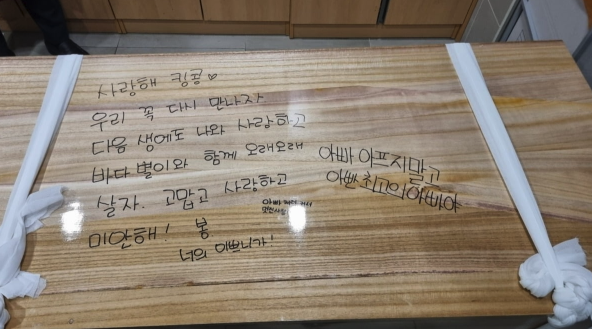 사랑해 킹콩♡
우리 꼭 다시 만나자
다음 생에도 나와 사랑하고
바다 별이와 함께 오래오래
살자. 고맙고 사랑하고
미안해! 봉
너의 이쁘니가!
아빠 아프지말고
아빤 최고의 아빠야
아빠